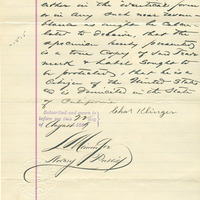 other in the identical form
or in any such near resem-
blance as might be calcu-
lated to deceive, that the
specimen hereby presented
is a true copy of his Trade
mark & label sought to
be protected, that he is a
Citizen of the United States
is Domiciled in the State
of California
Chas Klinger
Subscribed and sworn to
before me this 22nd
of August
Notary Public